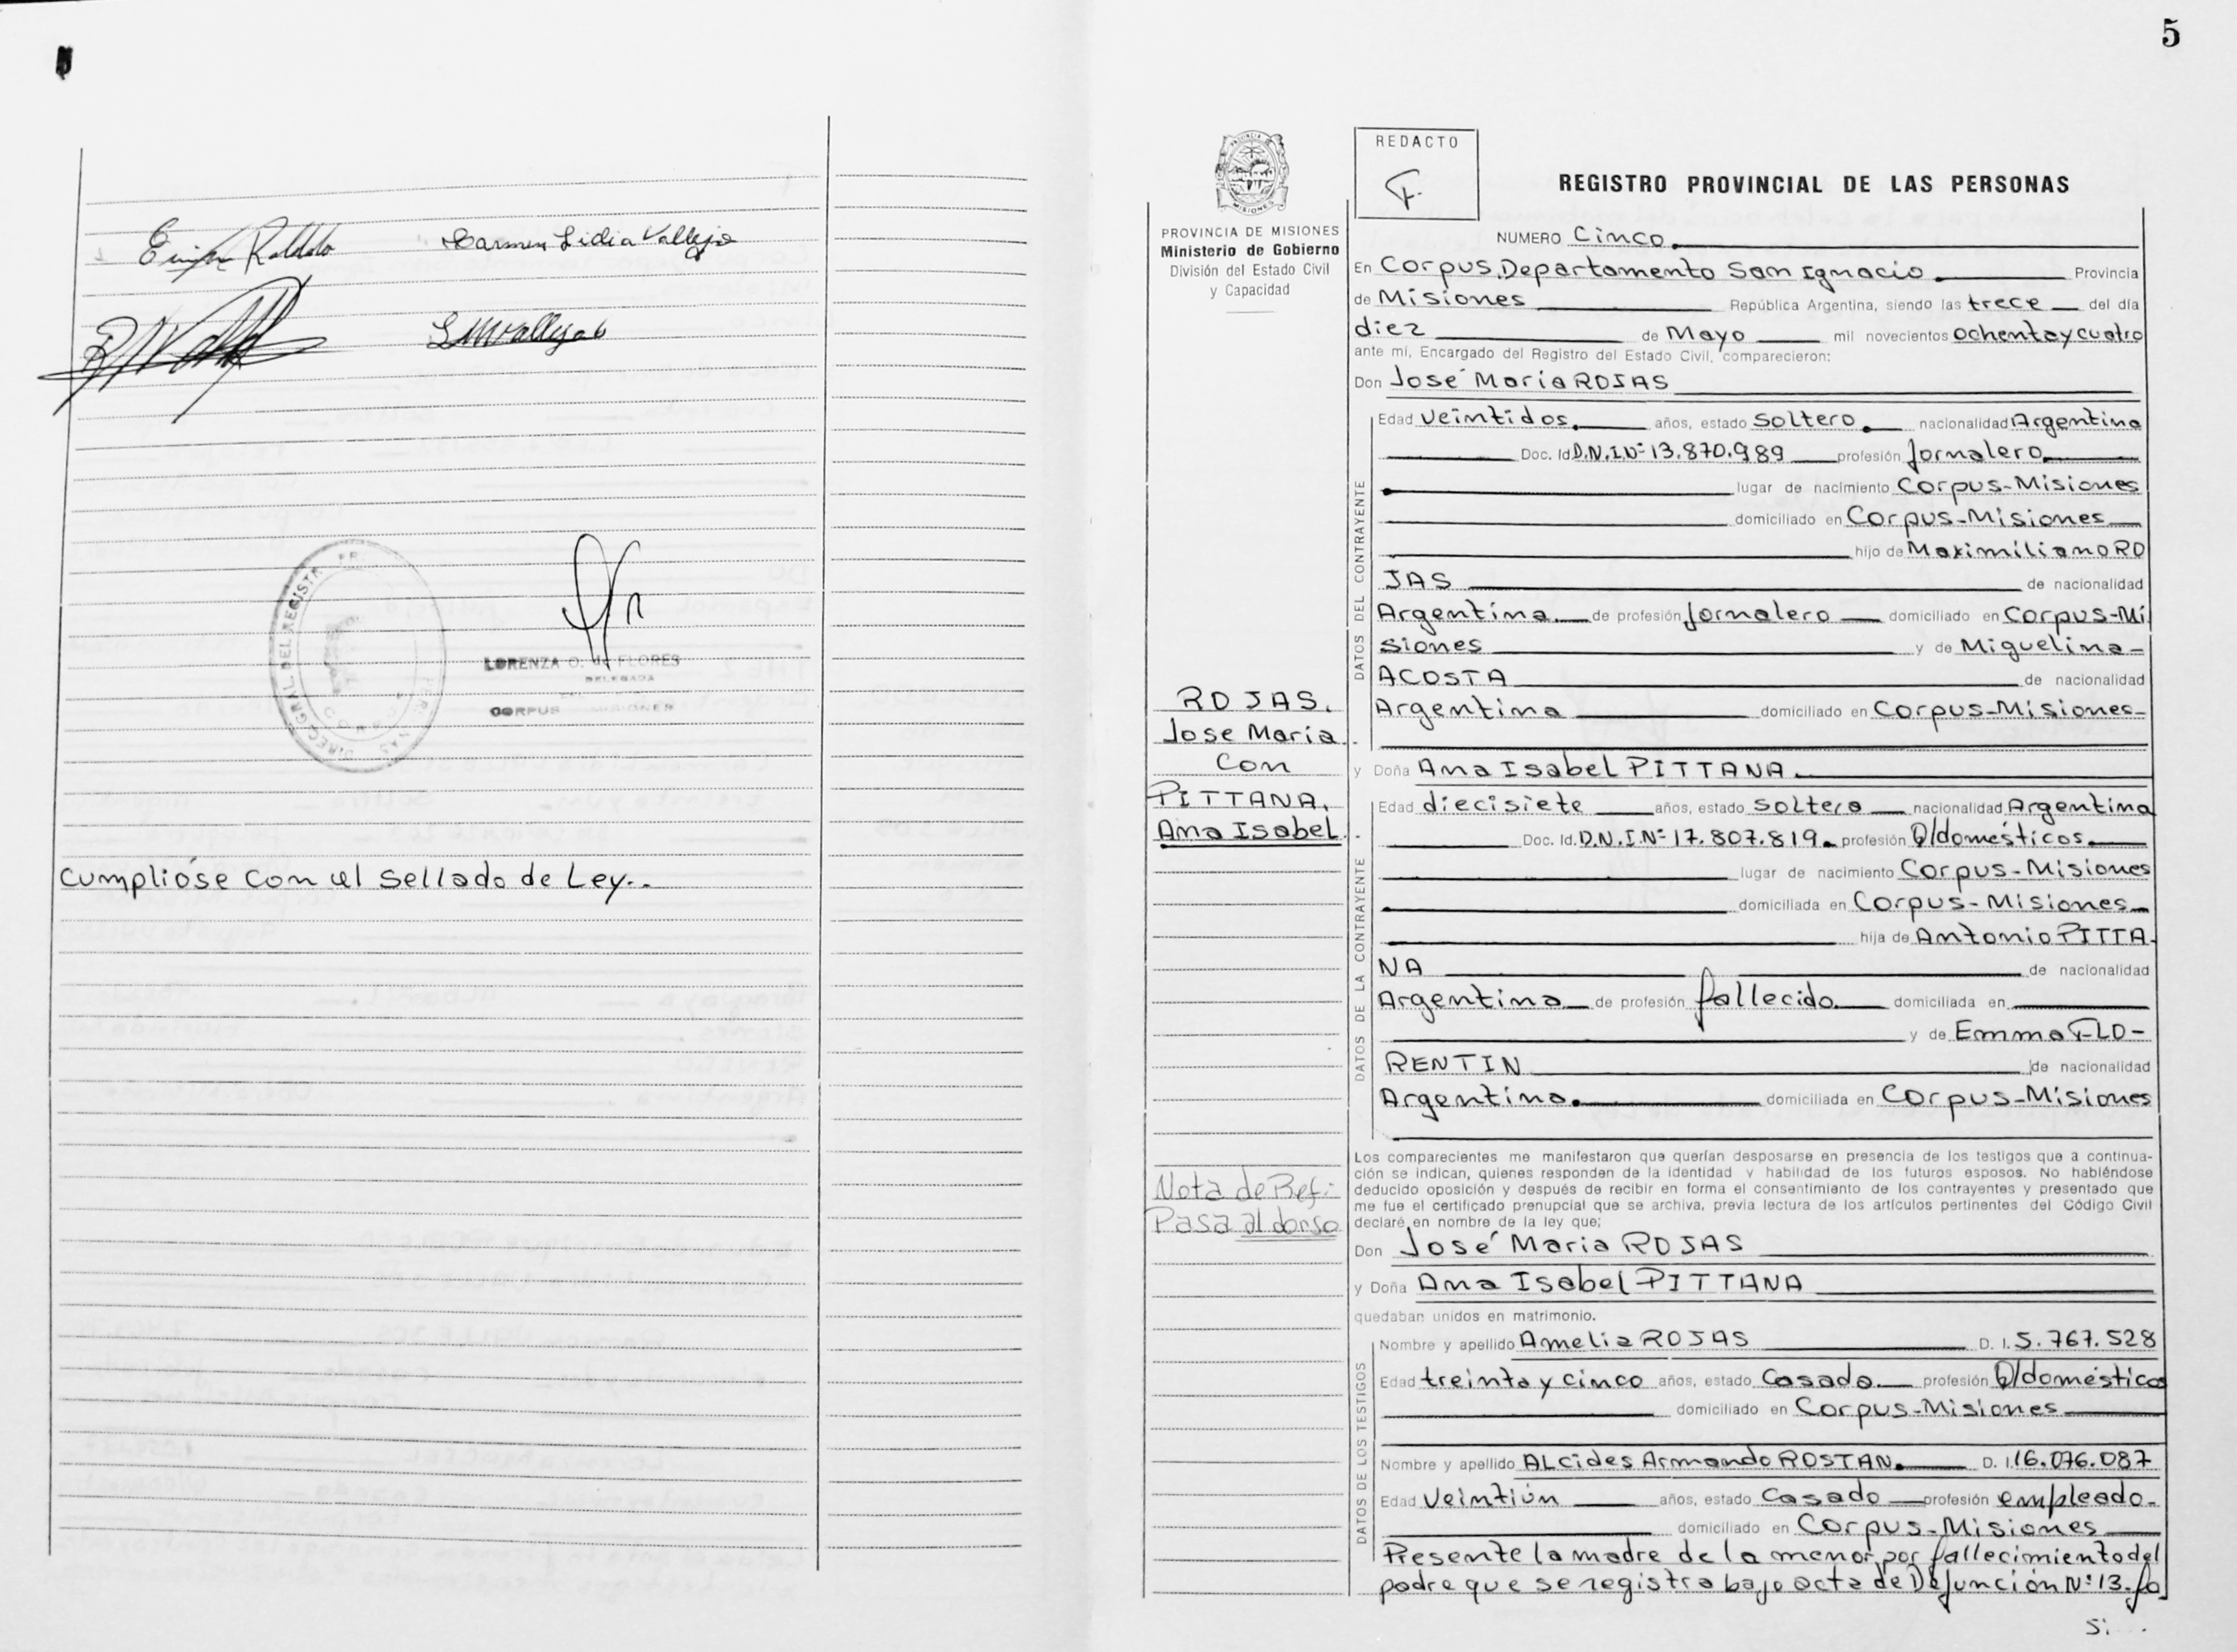 Carmen Lidia Vallejo
LORENZA O. de FLORES
DELEGADA
CORPUS MISIONES
Cumplióse con el sellado de Ley.-
5
PROVINCIA DE MISIONES
Ministerio de Gobierno
División del Estado Civil
y Capacidad
REDACTO
REGISTRO PROVINCIAL DE LAS PERSONAS
NUMERO Cinco
En Corpus, Departamento San Ignacio Provincia
de Misiones República Argentina, siendo las trece del día
diez de Mayo mil novecientos ochenta y cuatro
ante mí, Encargado del Registro del Estado Civil, comparecieron:
Don José Maria ROJAS
DATOS DEL CONTRAYENTE
Edad veintidos años, estado soltero nacionalidad Argentina
Doc. Id. D.N.I.Nº 13.870.989 profesión Jornalero
lugar de nacimiento Corpus-Misiones
domiciliado en Corpus-Misiones
hijo de Maximiliano RO
JAS de nacionalidad
Argentina de profesión Jornalero domiciliado en Corpus-Mi
siones y de Miguelina-
ACOSTA de nacionalidad
Argentina domiciliado en Corpus-Misiones-
ROJAS,
Jose Maria.
Con
PITTANA,
Ana Isabel.
y Doña Ana Isabel PITTANA
DATOS DE LA CONTRAYENTE
Edad diecisiete años, estado soltera nacionalidad Argentina
Doc. Id. D.N.I.Nº 17.807.819 profesión Q/domésticos
lugar de nacimiento Corpus-Misiones
domiciliada en Corpus-Misiones
hija de Antonio PITTA-
NA de nacionalidad
Argentina de profesión fallecido domiciliada en
y de Emma FLO-
RENTIN de nacionalidad
Argentina domiciliada en Corpus-Misiones
Los comparecientes me manifestaron que querían desposarse en presencia de los testigos que a continua-
ción se indican, quienes responden de la identidad y habilidad de los futuros esposos. No habléndose
deducido oposición y después de recibir en forma el consentimiento de los contrayentes y presentado que
me fue el certificado prenupcial que se archiva, previa lectura de los artículos pertinentes del Código Civil
declaré en nombre de la ley que;
Nota de Ref:
Pasa al dorso
Don José Maria ROJAS
y Doña Ana Isabel PITTANA
quedaban unidos en matrimonio.
DATOS DE LOS TESTIGOS
Nombre y apellido Amelia ROJAS D. I. 5.767.528
Edad treinta y cinco años, estado Casada profesión Q/doméstico
domiciliado en Corpus-Misiones
Nombre y apellido ALcides Armando ROSTAN D. I. 16.076.087
Edad Veintiún años, estado Casado profesión empleado-
domiciliado en Corpus-Misiones
Presente la madre de la menor, por fallecimiento del
padre que se registra bajo acta de Defunción Nº 13-fo